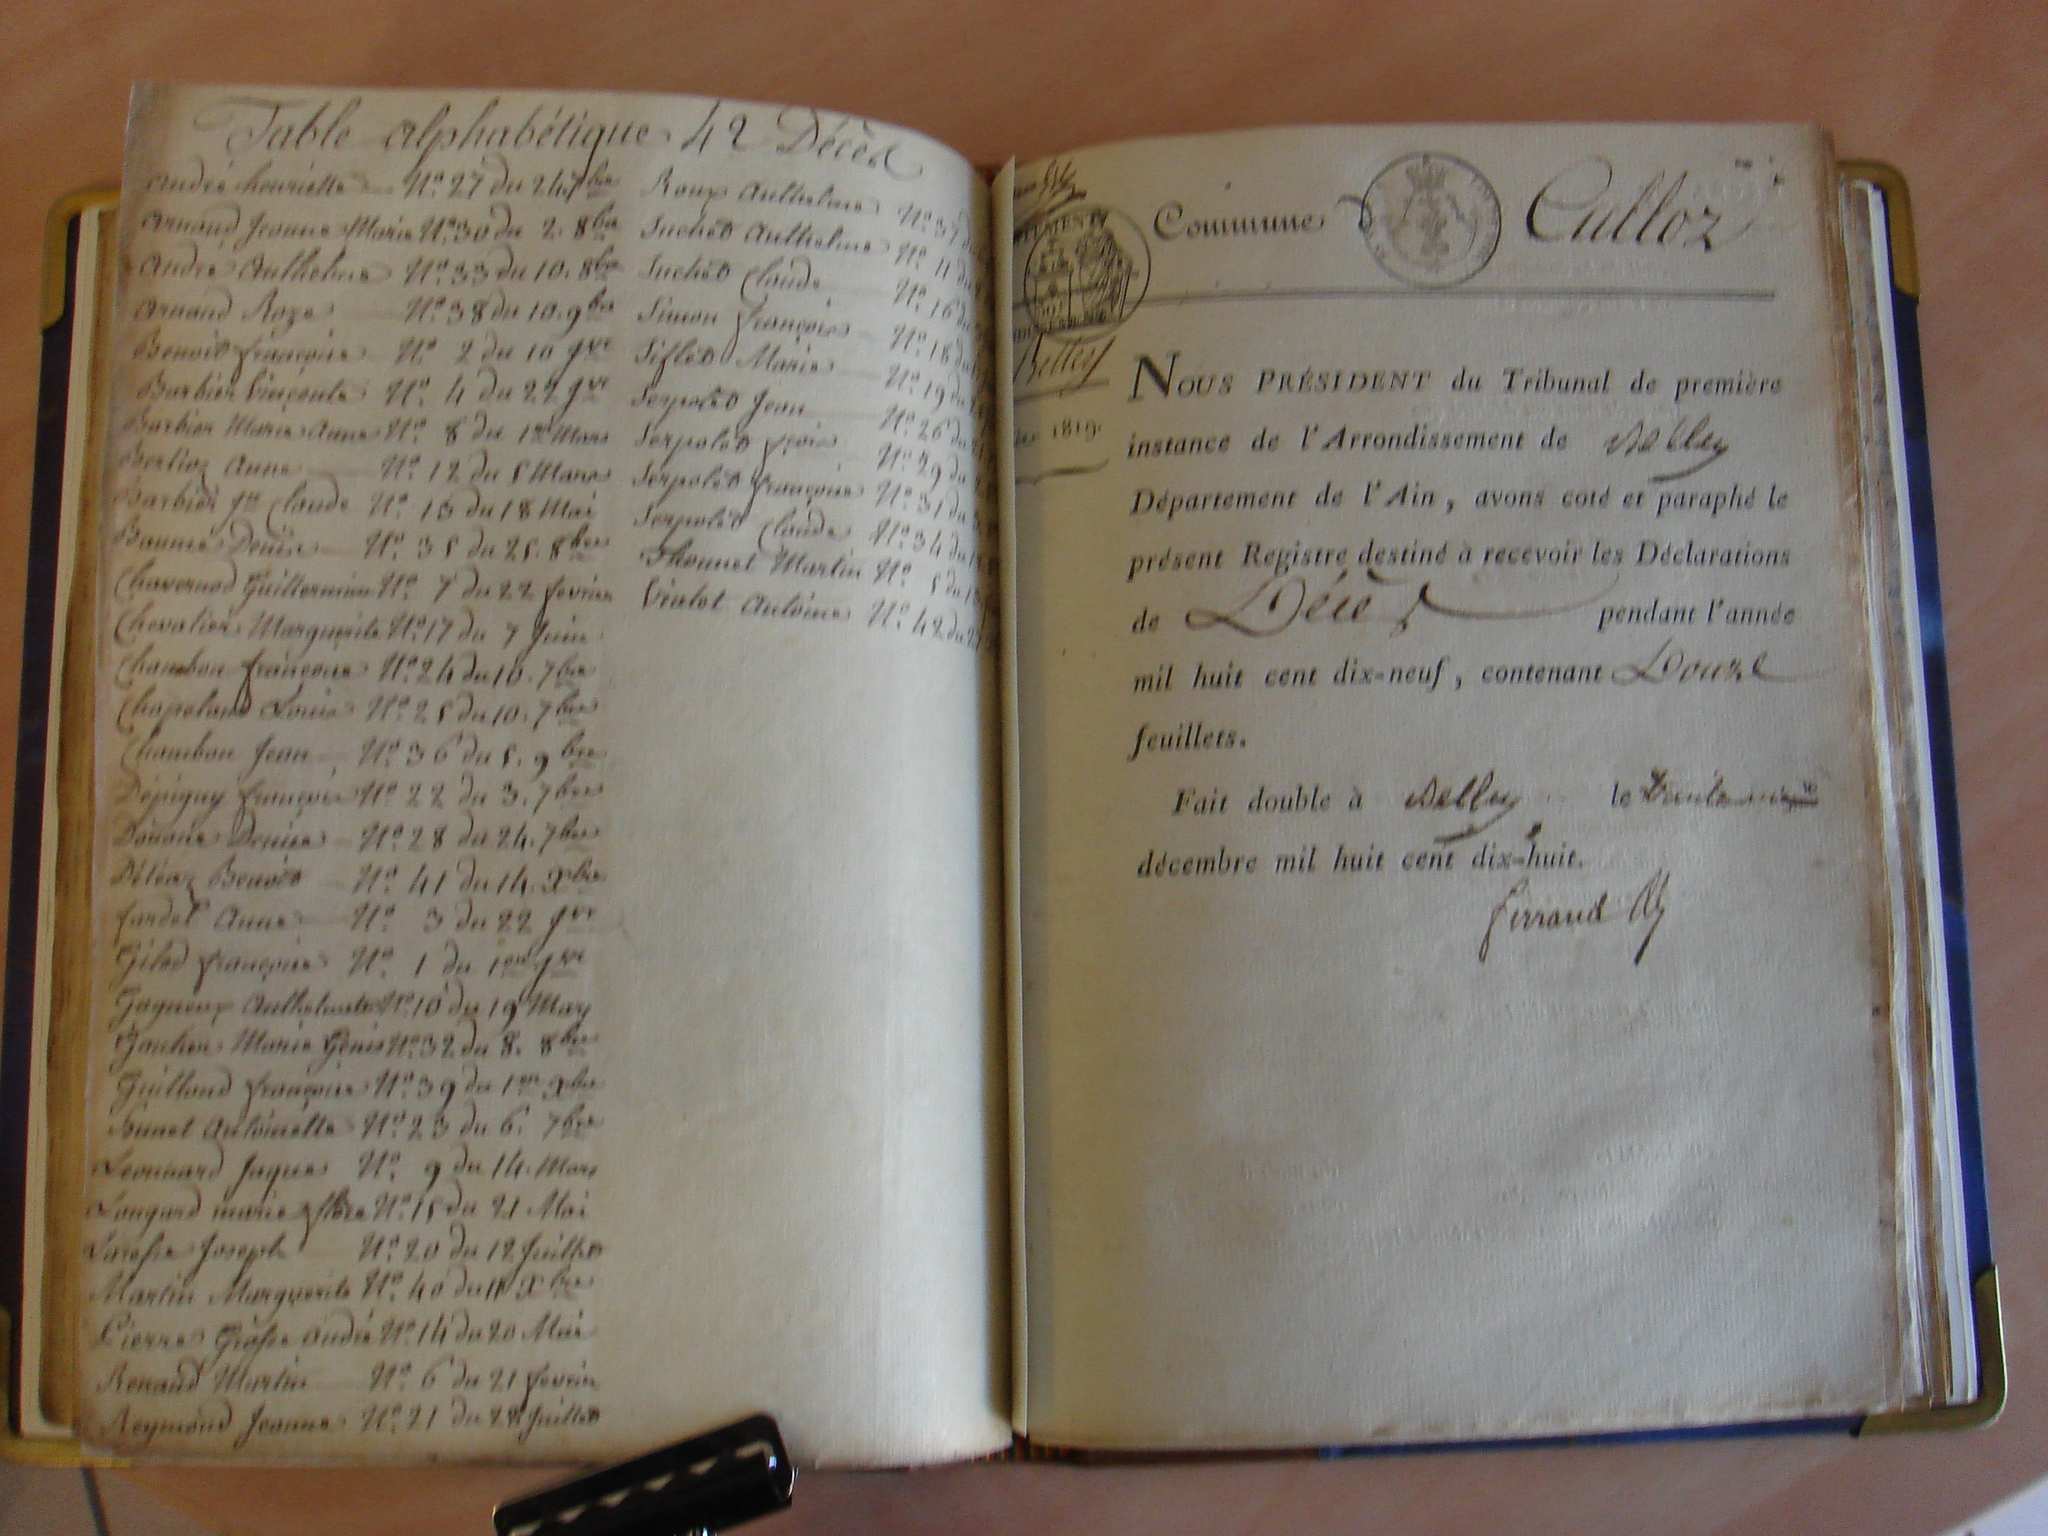 Table alphabétique 42 Décès
André henriette N.º 27 du 24 7bre
Arnaud Jeanne Marie N.º 30 du 2. 8bre
André Anthelme N.º 33 du 10. 8bre
Arnaud Roze N.º 38 du 10. 9bre
Benoit françoise N.º 2 du 10 jvr
Barbier N.º 4 du 22 jvr
Barbier Marie Anne N.º 8 du 1er Mars
Berlioz Anne N.º 12 du 5 Mars
Barbier Claude N.º 13 du 18 Mai
N.º 35 du 25. 8bre
N.º 7 du 22 fevrier
Chevalier Marguerite N.º 17 du 7 Juin
Chambon françoise N.º 24 du 10. 7bre
Louise N.º 25 du 10. 7bre
Chambon Jean N.º 36 du 5. 9bre
N.º 22 du 3. 7bre
N.º 28 du 24. 7bre
Benoit N.º 41 du 14. Xbre
fardel Anne N.º 3 du 22 jvr
françoise N.º 1 du 1er jvr
N.º 10 du 19 Mars
Marie N.º 32 du 8. 8bre
Guilloud françoise N.º 39 du 1er Xbre
Antoinette N.º 23 du 6. 7bre
Leonnard Jaques N.º 9 du 14. Mars
Longard marie N.º 15 du 21 Mai
Joseph N.º 20 du 12 Juillet
Martin Marguerite N.º 40 du Xbre
Pierre andré N.º 14 du 20 Mai
Renaud Martin N.º 6 du 21 fevrier
Reymond Jeanne N.º 21 du 28 Juillet
Roux Anthelme N.º 37 du
Suchet Anthelme N.º
Suchet Claude N.º 16 du
Simon françoise N.º 18 du
Siflet Marie N.º 19 du
Serpolet Jean N.º 26 du
Serpolet N.º 29 du
Serpolet françoise N.º 31 du
Serpolet Claude N.º 34 du
Thonnet Martin N.º 5 du
Violet Antoine N.º 42 du
Belley
1819.
Commune de Culloz
NOUS PRÉSIDENT du Tribunal de première
instance de l'Arrondissement de Belley
Département de l'Ain, avons coté et paraphé le
présent Registre destiné à recevoir les Déclarations
de Décès pendant l'année
mil huit cent dix-neuf, contenant Douze
feuillets.
Fait double à Belley le
décembre mil huit cent dix-huit.
ferrand